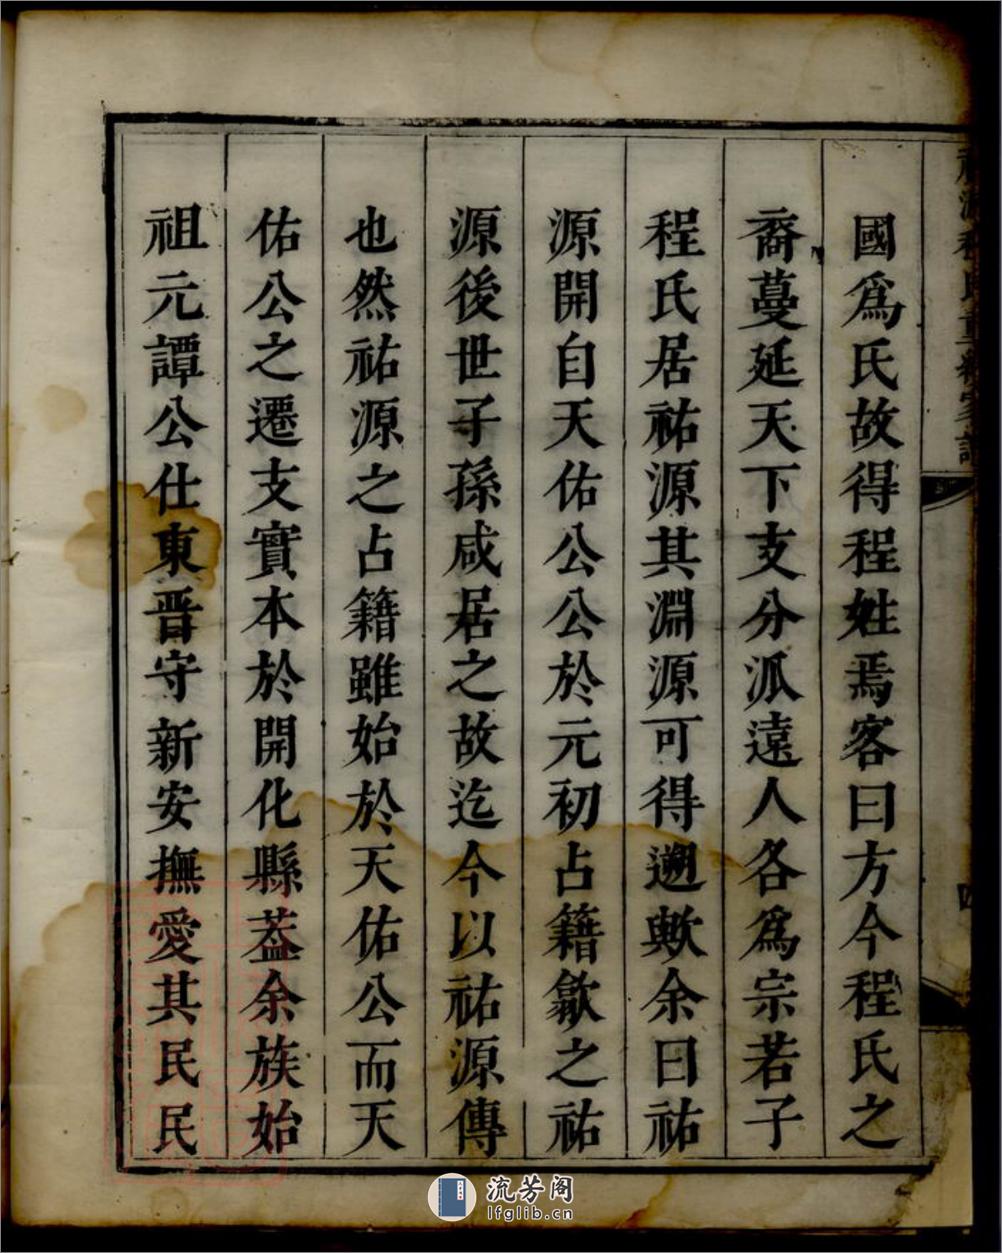 國爲氏故得程姓焉客曰方今程氏之
裔蔓延天下支分派遠人各爲宗若子
程氏居祐源其淵源可得遡歟余曰祐
源開自天佑公公於元初占籍歙之祐
源後世子孫咸居之故迄今以祐源傳
也然祐源之占籍雖始於天佑公而天
佑公之遷支實本於開化縣葢余族始
祖元譚公仕東晋守新安撫愛其民民
流芳阁
lfglib.cn